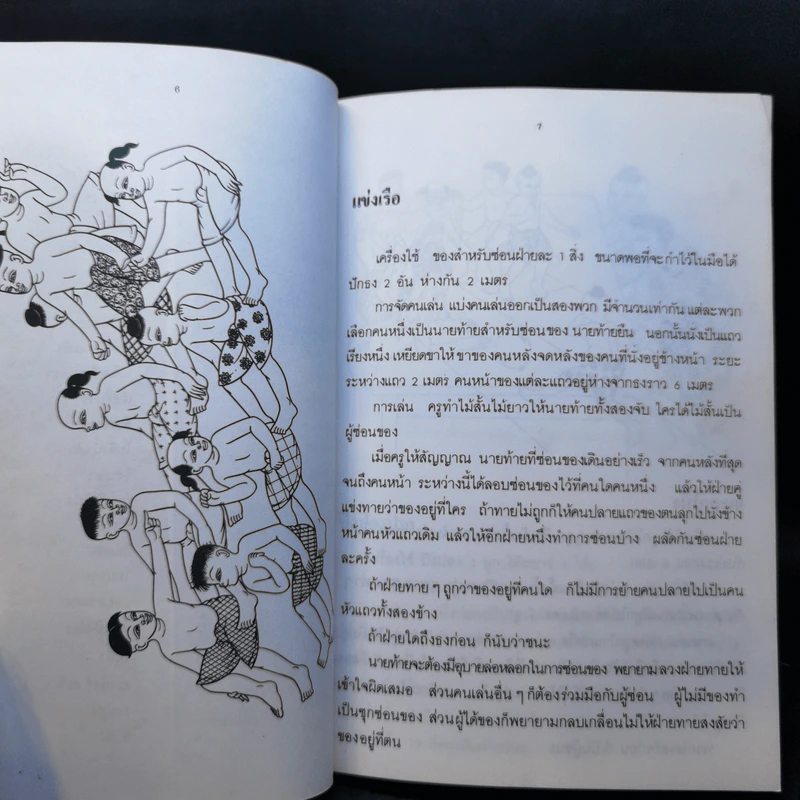 6
7
แข่งเรือ
เครื่องใช้ ของสำหรับซ่อนฝ่ายละ 1 สิ่ง ขนาดพอที่จะกำไว้ในมือได้
ปักธง 2 อัน ห่างกัน 2 เมตร
การจัดคนเล่น แบ่งคนเล่นออกเป็นสองพวก มีจำนวนเท่ากัน แต่ละพวก
เลือกคนหนึ่งเป็นนายท้ายสำหรับซ่อนของ นายท้ายยืน นอกนั้นนั่งเป็นแถว
เรียงหนึ่ง เหยียดขาให้ ขาของคนหลังจดหลังของคนที่นั่งอยู่ข้างหน้า ระยะ
ระหว่างแถว 2 เมตร คนหน้าของแต่ละแถวอยู่ห่างจากธงราว 6 เมตร
การเล่น ครูทำไม้สั้นไม้ยาวให้นายท้ายทั้งสองจับ ใครได้ไม้สั้นเป็น
ผู้ซ่อนของ
เมื่อครูให้สัญญาณ นายท้ายที่ซ่อนของเดินอย่างเร็ว จากคนหลังที่สุด
จนถึงคนหน้า ระหว่างนี้ได้ลอบซ่อนของไว้ที่คนใดคนหนึ่ง แล้วให้ฝ่ายคู่
แข่งทายว่าของอยู่ที่ใคร ถ้าทายไม่ถูกก็ให้คนปลายแถวของตนลุกไปนั่งข้าง
หน้าคนหัวแถวเดิม แล้วให้อีกฝ่ายหนึ่งทำการซ่อนบ้าง ผลัดกันซ่อนฝ่าย
ละครั้ง
ถ้าฝ่ายทาย ๆ ถูกว่าของอยู่ที่คนใด ก็ไม่มีการย้ายคนปลายไปเป็นคน
หัวแถวทั้งสองข้าง
ถ้าฝ่ายใดถึงธงก่อน ก็นับว่าชนะ
นายท้ายจะต้องมีอุบายล่อหลอกในการซ่อนของ พยายามลวงฝ่ายทายให้
เข้าใจผิดเสมอ ส่วนคนเล่นอื่น ๆ ก็ต้องร่วมมือกับผู้ซ่อน ผู้ไม่มีของทำ
เป็นซุกซ่อนของ ส่วนผู้ได้ของก็พยายามกลบเกลื่อนไม่ให้ฝ่ายทายสงสัยว่า
ของอยู่ที่ตน